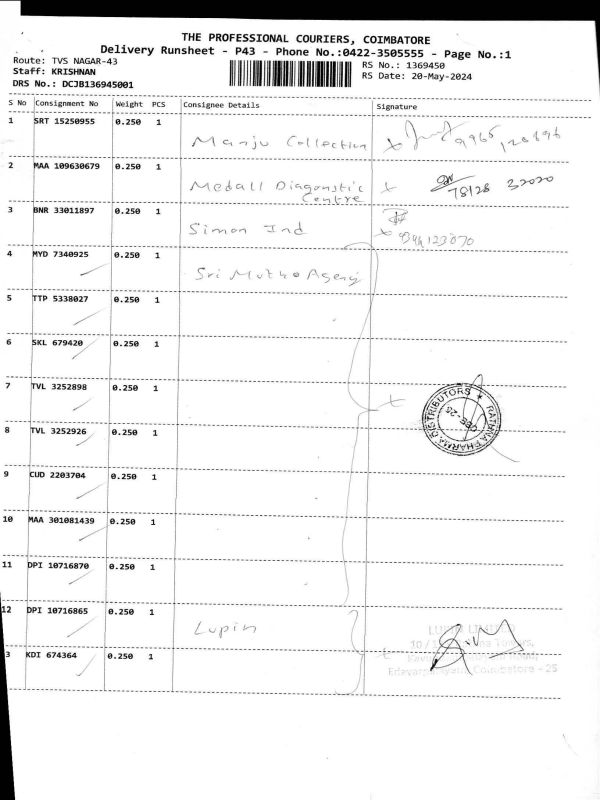 THE PROFESSIONAL COURIERS, COIMBATORE
Delivery Runsheet - P43 - Phone No.:0422-3505555 - Page No.:1
Route: TVS NAGAR-43
Staff: KRISHNAN
DRS No.: DCJB136945001
RS No.: 1369450
RS Date: 20-May-2024
S No Consignment No Weight PCS Consignee Details Signature
1 SRT 15250955 0.250 1 Manju Collection
2 MAA 109630679 0.250 1 Medall Diagonstic Centre 78128 32020
3 BNR 33011897 0.250 1 Simon Ind
4 MYD 7340925 0.250 1 Sri Muthu Agency
5 TTP 5338027 0.250 1
6 SKL 679420 0.250 1
7 TVL 3252898 0.250 1
8 TVL 3252926 0.250 1
RATHNA PHARMA DISTRIBUTORS
CBE-25
9 CUD 2203704 0.250 1
10 MAA 301081439 0.250 1
11 DPI 10716870 0.250 1
12 DPI 10716865 0.250 1 Lupin
3 KDI 674364 0.250 1
Coimbatore - 25